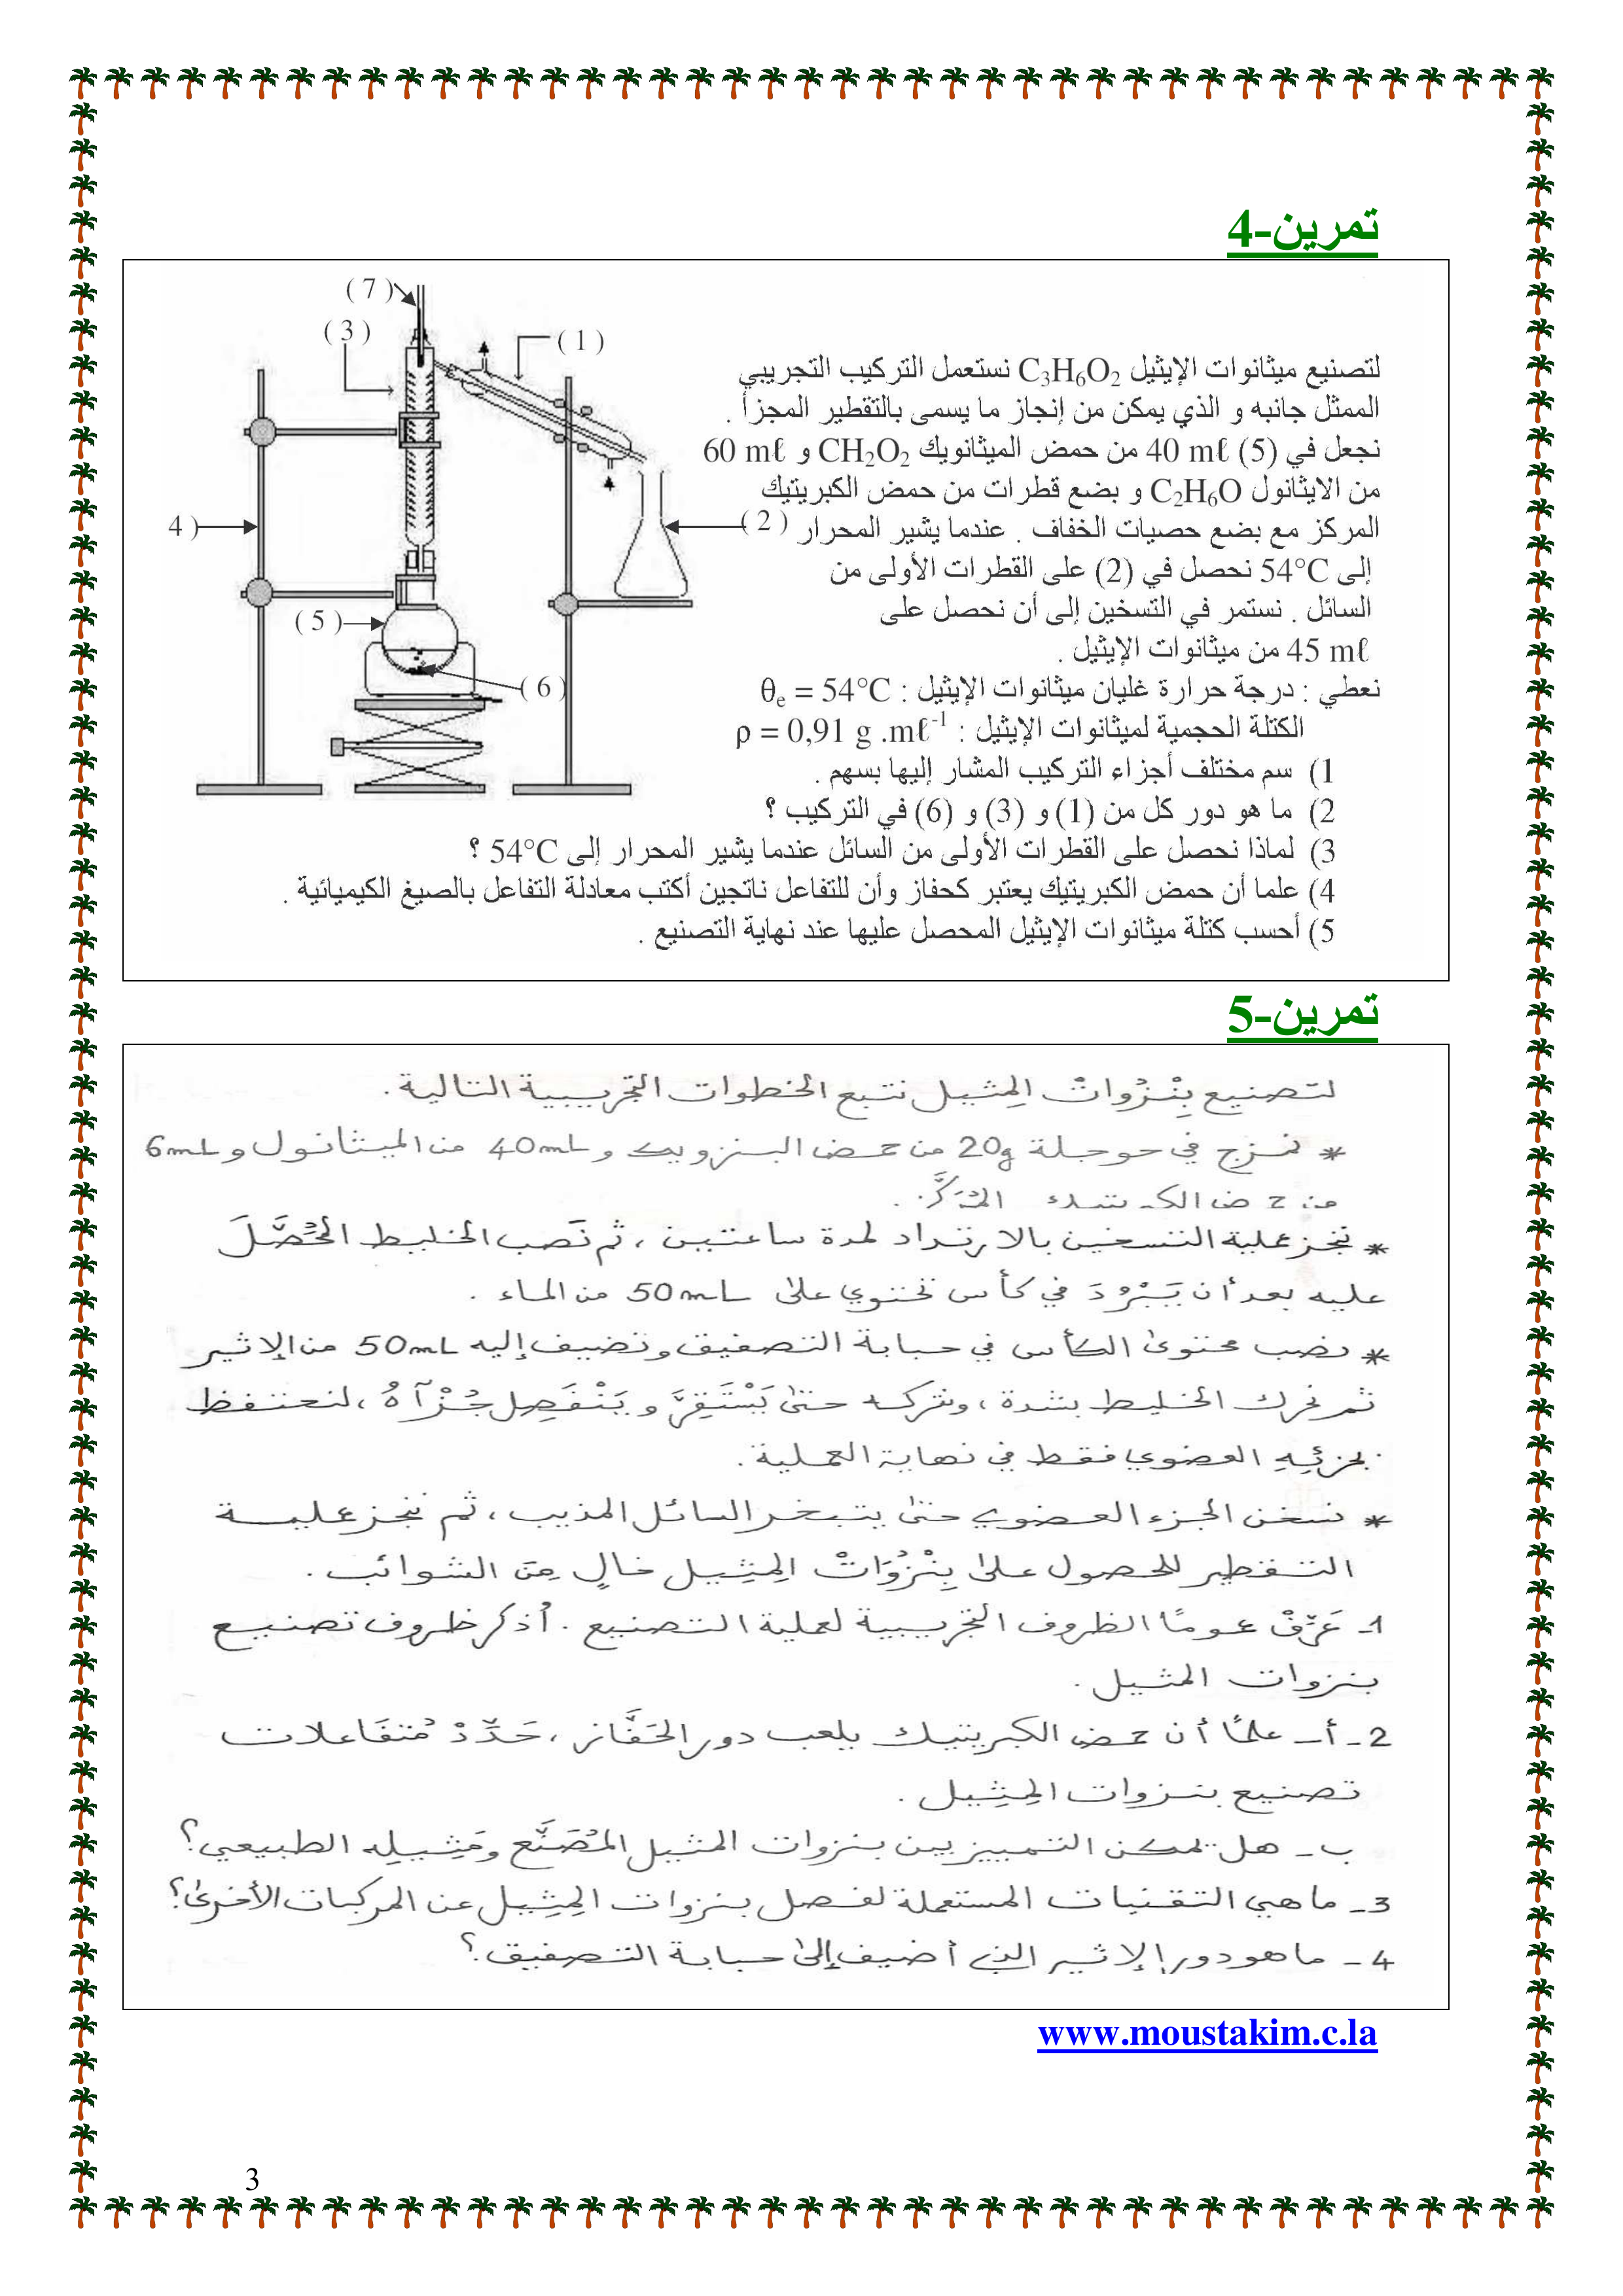 تمرين-4
( 7 )
( 3 )
( 1 )
4 )
( 2 )
( 5 )
( 6 )
لتصنيع ميثانوات الإيثيل C₃H₆O₂ نستعمل التركيب التجريبي
الممثل جانبه و الذي يمكن من إنجاز ما يسمى بالتقطير المجزأ .
نجعل في (5) 40 mℓ من حمض الميثانويك CH₂O₂ و 60 mℓ
من الايثانول C₂H₆O و بضع قطرات من حمض الكبريتيك
المركز مع بضع حصيات الخفاف . عندما يشير المحرار
إلى 54°C نحصل في (2) على القطرات الأولى من
السائل . نستمر في التسخين إلى أن نحصل على
45 mℓ من ميثانوات الإيثيل .
نعطي : درجة حرارة غليان ميثانوات الإيثيل : θₑ = 54°C
الكتلة الحجمية لميثانوات الإيثيل : ρ = 0,91 g .mℓ⁻¹
1) سم مختلف أجزاء التركيب المشار إليها بسهم .
2) ما هو دور كل من (1) و (3) و (6) في التركيب ؟
3) لماذا نحصل على القطرات الأولى من السائل عندما يشير المحرار إلى 54°C ؟
4) علما أن حمض الكبريتيك يعتبر كحفاز وأن للتفاعل ناتجين أكتب معادلة التفاعل بالصيغ الكيميائية .
5) أحسب كتلة ميثانوات الإيثيل المحصل عليها عند نهاية التصنيع .
تمرين-5
لتصنيع بِنْزُواتْ المِثيل نتبع الخطوات التجريبية التالية.
* نمزج في حوجلة 20g من حمض البنزويك و 40mL من الميثانول و 6mL
من حمض الكبريتيك المُرَكَّز.
* ننجز عملية التسخين بالارتداد لمدة ساعتين ، ثم نَصب الخليط المُحَصَّلَ
عليه بعد أن يَبْرُدَ في كأس تحتوي على 50mL من الماء .
* نصب محتوى الكأس في حبابة التصفيق ونضيف إليه 50mL من الإثير
ثم نحرك الخليط بشدة ، ونتركه حتى يَسْتَقِرَّ و يَنْفَصِل جُزْآهُ ، لنحتفظ
بجزئِهِ العضوي فقط في نهاية العملية.
* نسخن الجزء العضوي حتى يتبخر السائل المذيب ، ثم ننجز عملية
التقطير للحصول على بِنْزُوَاتْ المِثِيل خالٍ مِنَ الشوائب .
1- عَرِّفْ عمومًا الظروف التجريبية لعملية التصنيع . أذكر ظروف تصنيع
بنزوات المثيل .
2- أ- علمًا أن حمض الكبريتيك يلعب دور الحَفَّاز ، حَدِّدْ مُتفَاعلات
تصنيع بنزوات المِثِيل .
ب- هل يمكن التمييز بين بنزوات المثيل المُصَنَّع ومَثِيلِه الطبيعي؟
3- ماهي التقنيات المستعملة لفصل بنزوات المِثِيل عن المركبات الأخرى؟
4- ماهو دور الإثير الذي أضيف إلى حبابة التصفيق؟
www.moustakim.c.la
3